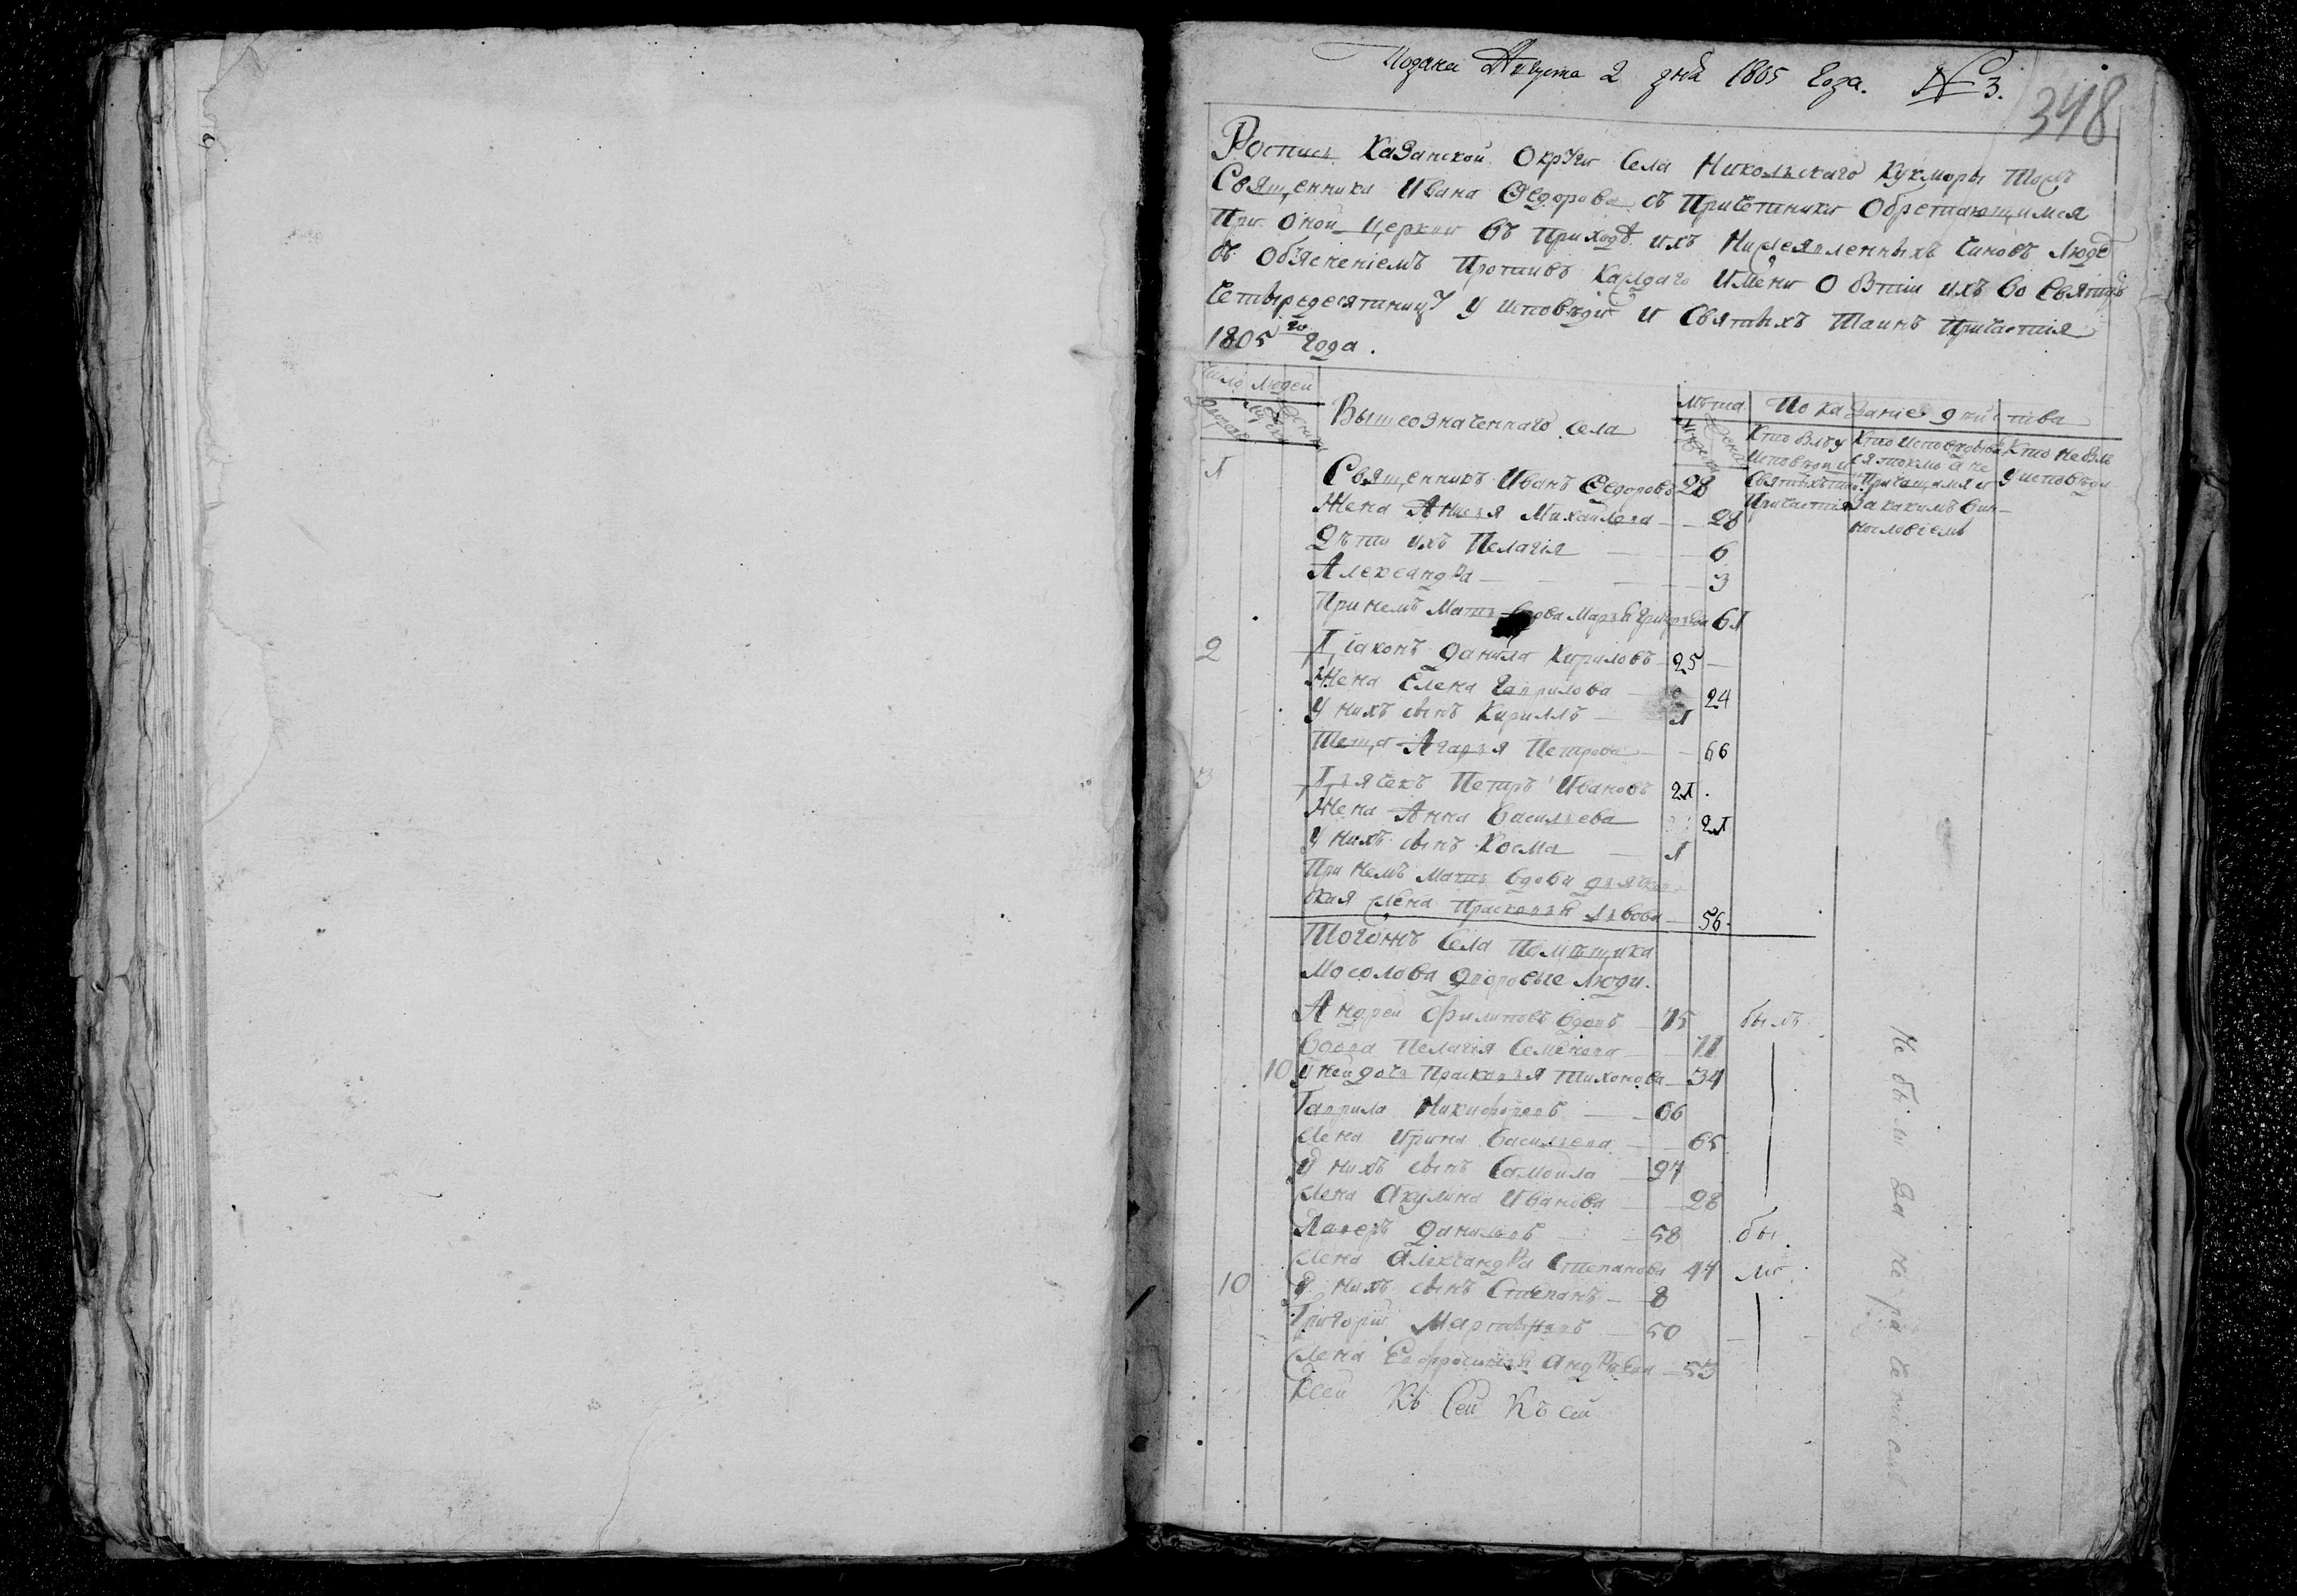 Подана Августа 2 дня 1805 Года. № 3.
348
Роспись Казанской Округи Села Никольскаго Кукморы тожъ
Священника Ивана Ѳедорова съ Причетники Обретающимся
При оной церкви въ Приходѣ ихъ Нижеявленныхъ Чиновъ Люде
съ Объясненіемъ Противъ Каждаго Имени О бытіи ихъ во Святую
Четыредесятницу у исповѣди и Святыхъ Таинъ Причастія
1805 го Года.
Число Людей
Дворовъ
Мужска
Женска
Вышеозначеннаго села
Лѣта
Мужеска
Женска
Показаніе дѣйства
Кто былъ у исповѣди и Святыхъ Таинъ Причастія
Кто исповѣдывался токмо а не Причащался и за какимъ винословіемъ
Кто не былъ у исповѣди
1 Священникъ Иванъ Ѳедоровъ 28
Жена Анисья Михайлова 28
Дѣти ихъ Пелагія 6
Александра 3
При немъ Мать вдова Марья Григорьева 61
2 Діаконъ Данила Кириловъ 25
Жена Елена Гаврилова 24
У нихъ сынъ Кириллъ 1
Теща Агафья Петрова 66
3 Дьячекъ Петръ Ивановъ 21
Жена Анна Васильева 21
У нихъ сынъ Косма 1
При немъ Мать вдова дьячков-
ская жена Прасковья Львова 56.
Тогожъ Села Помѣщика
Мосолова дворовые Люди.
Андрей Филиповъ вдовъ 75 былъ
Вдова Пелагія Семенова 71
10 У ней дочь Прасковья Тихонова 34
Гаврила Никифоровъ 66
Жена Ирина Васильева 65
У нихъ сынъ Самойла 27
Жена Акулина Иванова 28
Лаверъ Даниловъ 58 бы
Жена Александра Степанова 47 ли
10 У нихъ сынъ Степанъ 8
Григорій Мартыновъ 50
Жена Евфросинья Андреева 53
Не были За нераченіемъ
Ксей Къ Сей Къ сей